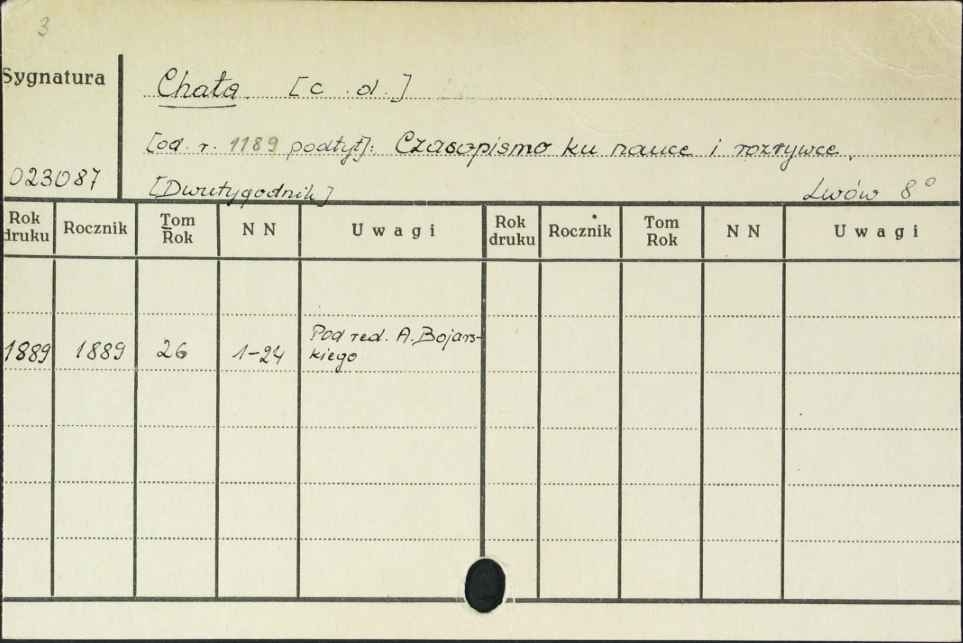 3
Sygnatura
Chata [c. d.]
[od. r. 1189 podtyt]: Czasopismo ku nauce i rozrywce.
023087
[Dwutygodnik] Lwów 8°
Rok druku Rocznik Tom Rok NN Uwagi Rok druku Rocznik Tom Rok NN Uwagi
1889 1889 26 1-24 Pod red. A. Bojars-
kiego